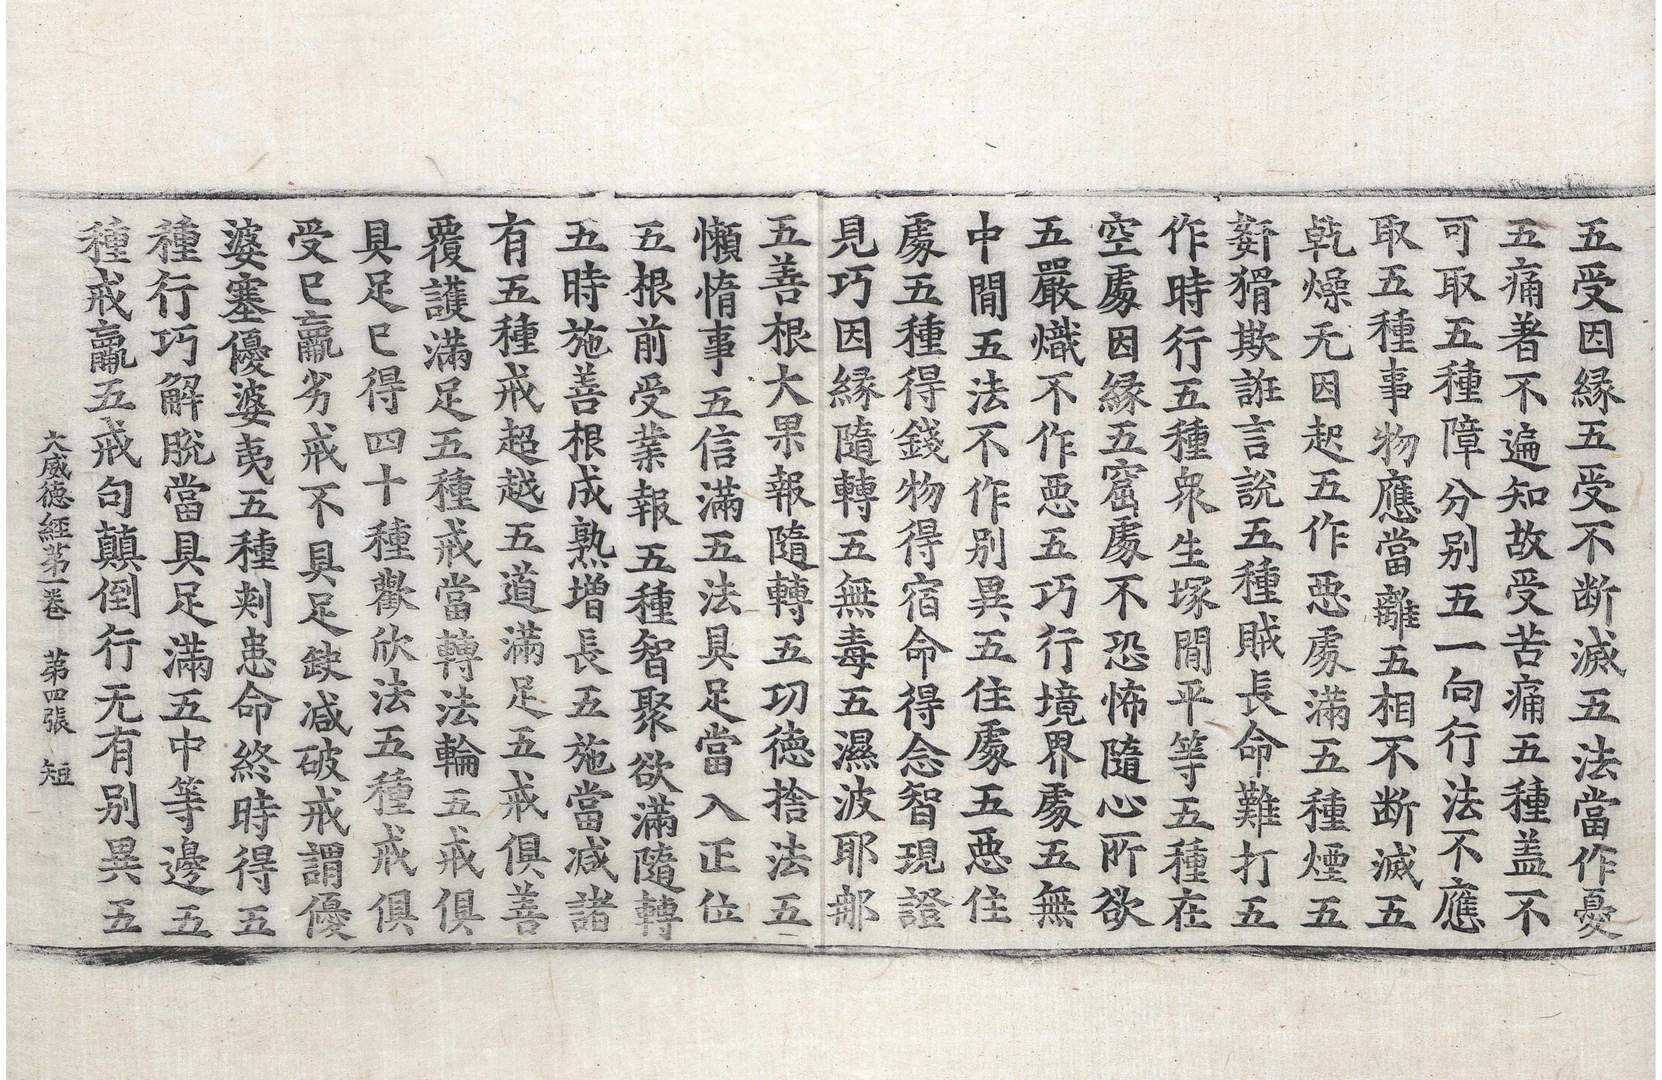 五受因緣五受不断滅五法當作憂
五痛著不遍知故受苦痛五種盖不
可取五種障分別五一句行法不應
取五種事物應當離五相不断滅五
乹燥无因起五作惡處滿五種煙五
姧猾欺誑言說五種賊長命難打五
作時行五種衆生塚間平等五種在
空處因緣五窟處不恐怖隨心所欲
五嚴熾不作惡五巧行境界處五無
中間五法不作別異五住處五惡住
處五種得錢物得宿命得念智現證
見巧因緣隨轉五無毒五濕波耶郍
五善根大果報隨轉五功德捨法五
懶惰事五信滿五法具足當入正位
五根前受業報五種智聚欲滿隨轉
五時施善根成熟增長五施當减諸
有五種戒超越五道滿足五戒俱善
覆護滿足五種戒當轉法輪五戒俱
具足已得四十種歡欣法五種戒俱
受已羸劣戒不具足缺减破戒謂優
婆塞優婆夷五種刺恚命終時得五
種行巧解脫當具足滿五中等邊五
種戒羸五戒句顛倒行无有別異五
大威德經第一卷 第四張 短